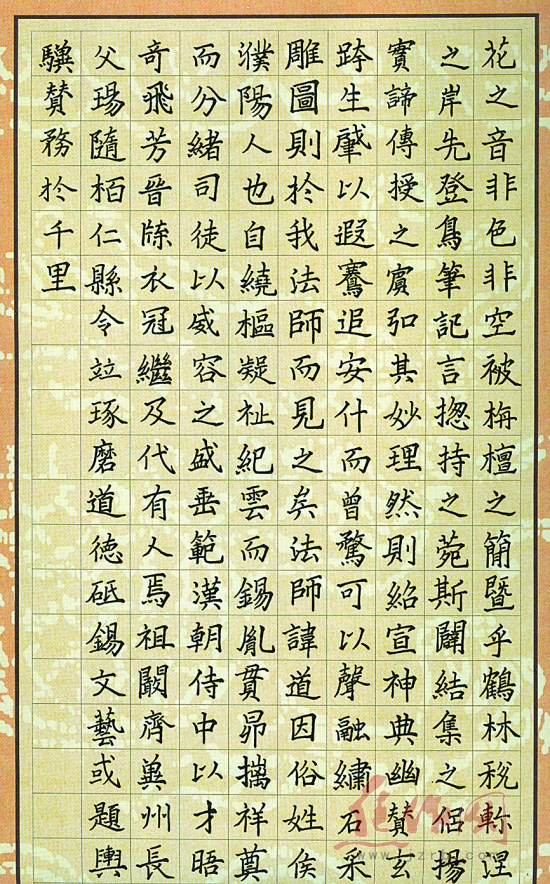 花之音非色非空被栴檀之簡暨乎鶴林稅軫涅
之岸先登鳥筆記言揔持之菀斯闢結集之侶揚
實諦傳授之賓弘其妙理然則紹宣神典幽贊玄
跨生肇以遐騫追安什而曾騖可以聲融繡石采
雕圖則於我法師而見之矣法師諱道因俗姓侯
濮陽人也自繞樞凝祉紀雲而錫胤貫昴摛祥奠
而分緒司徒以威容之盛垂範漢朝侍中以才晤
奇飛芳晉牒衣冠繼及代有人焉祖闞齊冀州長
父瑒隨栢仁縣令竝琢磨道德砥錫文藝或題輿
驥贊務於千里